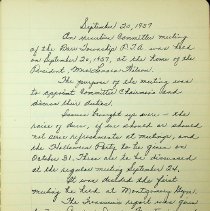 September 20, 1957
An executive Committee meeting
of the Dare Township P.T.A. was held
on September 20, 1957, at the home of the
President, Mrs. Wilson.
The purpose of the meeting was
to appoint Committee Chairmen and
discuss their duties.
Issues brought up were - the
raise of dues, if we should or should
not serve refreshments at meetings, and
the Halloween Party to be given on
October 31. These are to be discussed
at the regular meeting September 24.
It was decided the first
meeting be held at Montgomery
The Treasurer's report was given